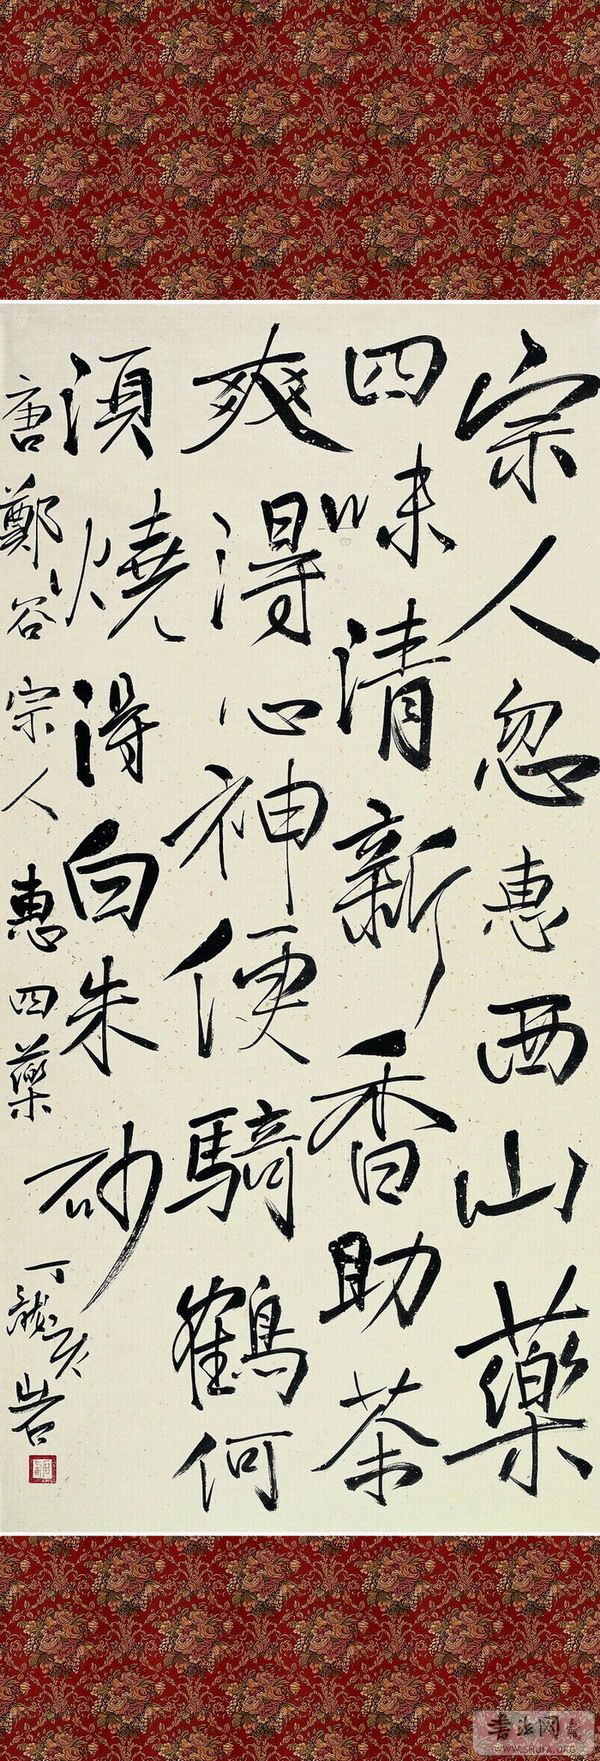 宗人忽惠西山藥
四味清新香助茶
爽得心神便騎鶴何
須燒得白朱砂
唐鄭谷宗人惠四藥 丁
書法网
WWW.SHUFA.ORG